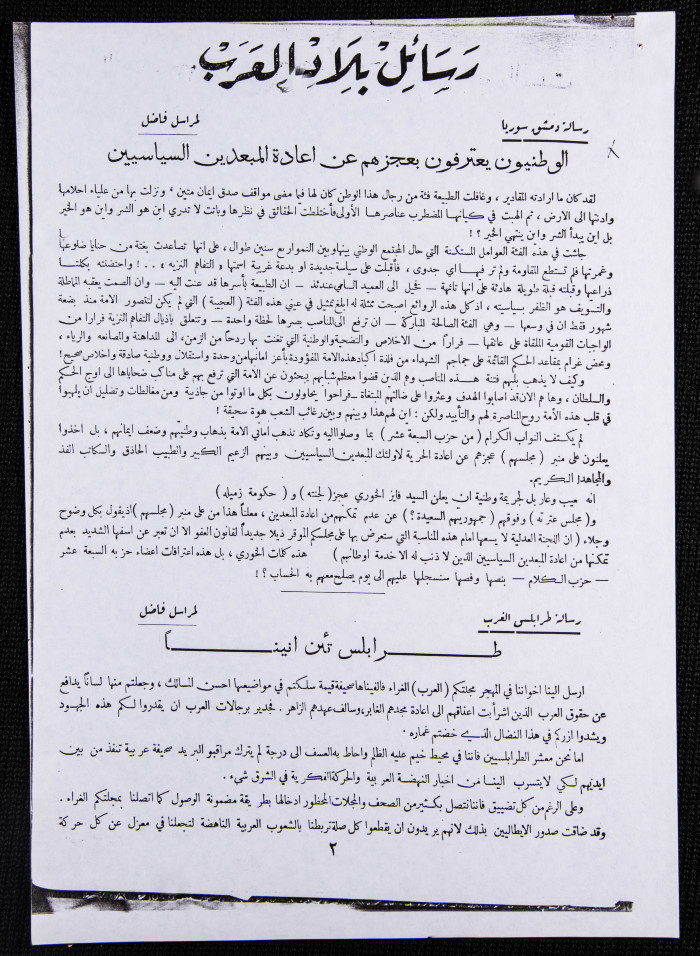 رسائل بلاد العرب
رسالة دمشق سوريا
لمراسل فاضل
الوطنيون يعترفون بعجزهم عن اعادة المبعدين السياسيين
لقد كان ما ارادته المقادير ، وغافلت الطبيعة فئة من رجال هذا الوطن كان لها فيما مضى مواقف صدق ايمان متين ، ونزلت بها من علياء احلامها
وادنتها الى الارض ، ثم الهبت في كيانها المضطرب عناصرها الأولى فأختلطت الحقائق في نظرها وباتت لا تدري اين هو الشر واين هو الخير
بل اين يبدأ الشر واين ينتهي الخير ؟ !
جاشت في هذه الفئة العوامل المستكنة التي حال المجتمع الوطني بينها وبين النمو اربع سنين طوال ، على انها تصاعدت بغتة من حنايا ضلوعها
وغمرتها فلم تستطع المقاومة ولم تر فيها اي جدوى ، فأقبلت على سياسة جديدة او بدعة غريبة اسمتها « التفاهم النزيه » . . ! واحتضنته بكلتا
ذراعيها وقبلته قبلة طويلة هادئة على انها تائهة — فخيل الى العميد السامي عندئذ — ان الطبيعة بأسرها قد عنت اليه — وان الصمت يعقبه الماطلة
والتسويف هو الظفر بسياسته ، اذ كل هذه الروائع اصبحت ممثلة له ابلغ تمثيل في عيني هذه الفئة ( العجيبة ) التي لم يكن لتتصور الامة منذ بضعة
شهور فقط ان في وسعها — وهي الفئة الصالحة المباركة — ان ترفع الى المناصب بصرها لحظة واحدة — وتتعلق باذيال التفاهم النزيه فرارا من
الواجبات القومية الملقاة على عاتقها — فراراً من الاخلاص والتضحية والوطنية التي تغنت بها ردحاً من الزمن ، الى المداهنة والمصانعة والرياء ،
ومحض غرام بمقاعد الحكم القائمة على جماجم الشهداء من فلذة اكباد هذه الامة المفؤودة بأعز امانيها من وحدة واستقلال ووطنية صادقة واخلاص صحيح !
وكيف لا يذهب بلبهم فتنة هذه المناصب وهم الذين قضوا معظم شبابهم يبحثون عن الامة التي ترفع بهم على مناكب ضحاياها الى اوج الحكم
والسلطان ، وها هم الآن قد اصابوا الهدف وعثروا على ضالتهم المبتغاة — فراحوا يحاولون بكل ما اوتوا من جاذبية ومن مغالطات وتضليل ان يلهبوا
في قلب هذه الأمة روح المناصرة لهم والتأييد ولكن : اين لهم هذا وبينهم وبين رغائب الشعب هوة سحيقة !
لم يكتف النواب الكرام ( من حزب السبعة عشر ) بما وصلوا اليه وتكاد تذهب اماني الامة بذهاب وطنيتهم وضعف ايمانهم ، بل اخذوا
يعلنون على منبر ( مجلسهم ) عجزهم عن اعادة الحرية لاولئك المبعدين السياسيين وبينهم الزعيم الكبير والطبيب الحاذق والكاتب الفذ
والمجاهد الكريم .
انه عيب وعار بل لجريمة وطنية ان يعلن السيد فايز الخوري عجز ( لجنته ) و ( حكومة زميله )
و ( مجلس عترته ) وفوقهم ( جمهوريتهم السعيدة ؟ ) عن عدم تمكنهم من اعادة المبعدين ، معلناً هذا من على منبر ( مجلسهم ) اذ يقول بكل وضوح
وجلاء ( ان اللجنة العدلية لا يسعها امام هذه المناسبة التي ستعرض بها على مجلسكم الموقر ذيلا جديداً لقانون العفو الا ان تعبر عن اسفها الشديد بعدم
تمكنها من اعادة المبعدين السياسيين الذين لا ذنب له الا خدمة اوطانهم ) هذه كلمات الخوري ، بل هذه اعترافات اعضاء حزبه السبعة عشر
— حزب الكلام — بنصها وفصها سنسجلها عليهم الى يوم يصلح معهم به الحساب ؟ !
رسالة طرابلس الغرب
لمراسل فاضل
طرابلس تئن انيناً
ارسل الينا اخواننا في المهجر مجلتكم ( العرب ) الغراء فألفيناها صحيفة قيمة سلكتم في مواضيعها احسن المسالك ، وجعلتم منها لساناً يدافع
عن حقوق العرب الذين اشرأبت اعناقهم الى اعادة مجدهم الغابر ، وسالف عهدهم الزاهر . فجدير برجالات العرب ان يقدروا لكم هذه الجهود
ويشدوا ازركم في هذا النضال الذي خضتم غماره .
اما نحن معشر الطرابلسيين فاننا في محيط خيم عليه الظلم واحاط به العسف الى درجة لم يترك مراقبو البريد صحيفة عربية تنفذ من بين
ايديهم لكي لا يتسرب الينا من اخبار النهضة العربية والحركة الفكرية في الشرق شيء .
وعلى الرغم من كل تضييق فاننا نتصل بكثير من الصحف والمجلات المحظور ادخالها بطريقة مضمونة الوصول كما اتصلنا بمجلتكم الغراء .
وقد ضاقت صدور الايطاليين بذلك لانهم يريدون ان يقطعوا كل صلة تربطنا بالشعوب العربية الناهضة لتجعلنا في معزل عن كل حركة
٢